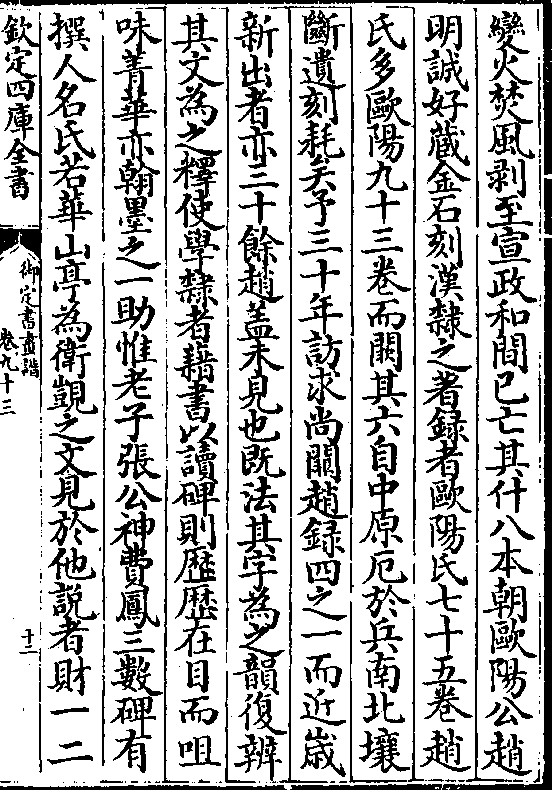 變火焚風剥至宣政和間已亡其什八本朝歐陽公趙
明誠好藏金石刻漢隸之著録者歐陽氏七十五卷趙
氏多歐陽九十三卷而闕其六自中原厄於兵南北壤
斷遺刻耗矣予三十年訪求尚闕趙録四之一而近嵗
新出者亦三十餘趙葢未見也既法其字為之韻復辨
其文為之釋使學隸者藉書以讀碑則歴歴在目而咀
味菁華亦翰墨之一助惟老子張公神費鳳三數碑有
撰人名氏若華山亭為衛覬之文見於他說者財一二
欽定四庫全書
御定書畫譜
卷九十三
十二